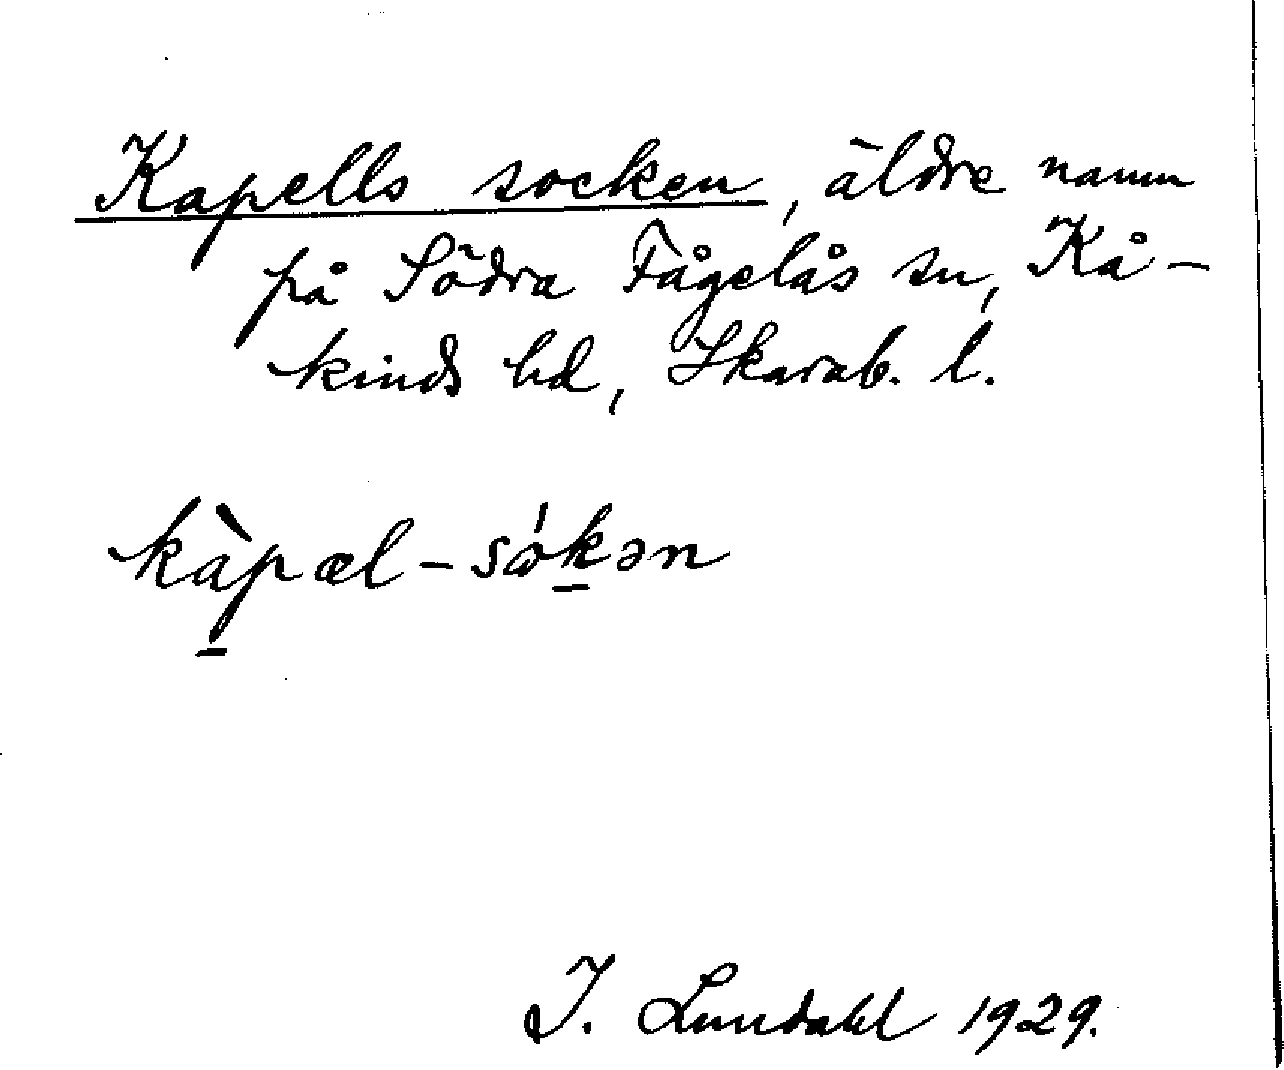 Kapells socken, äldre namn
på Södra Fågelås sn, Kå-
kinds hd, Skarab. l.
kàp̠æl-sók̠ən
I. Lundahl 1929.